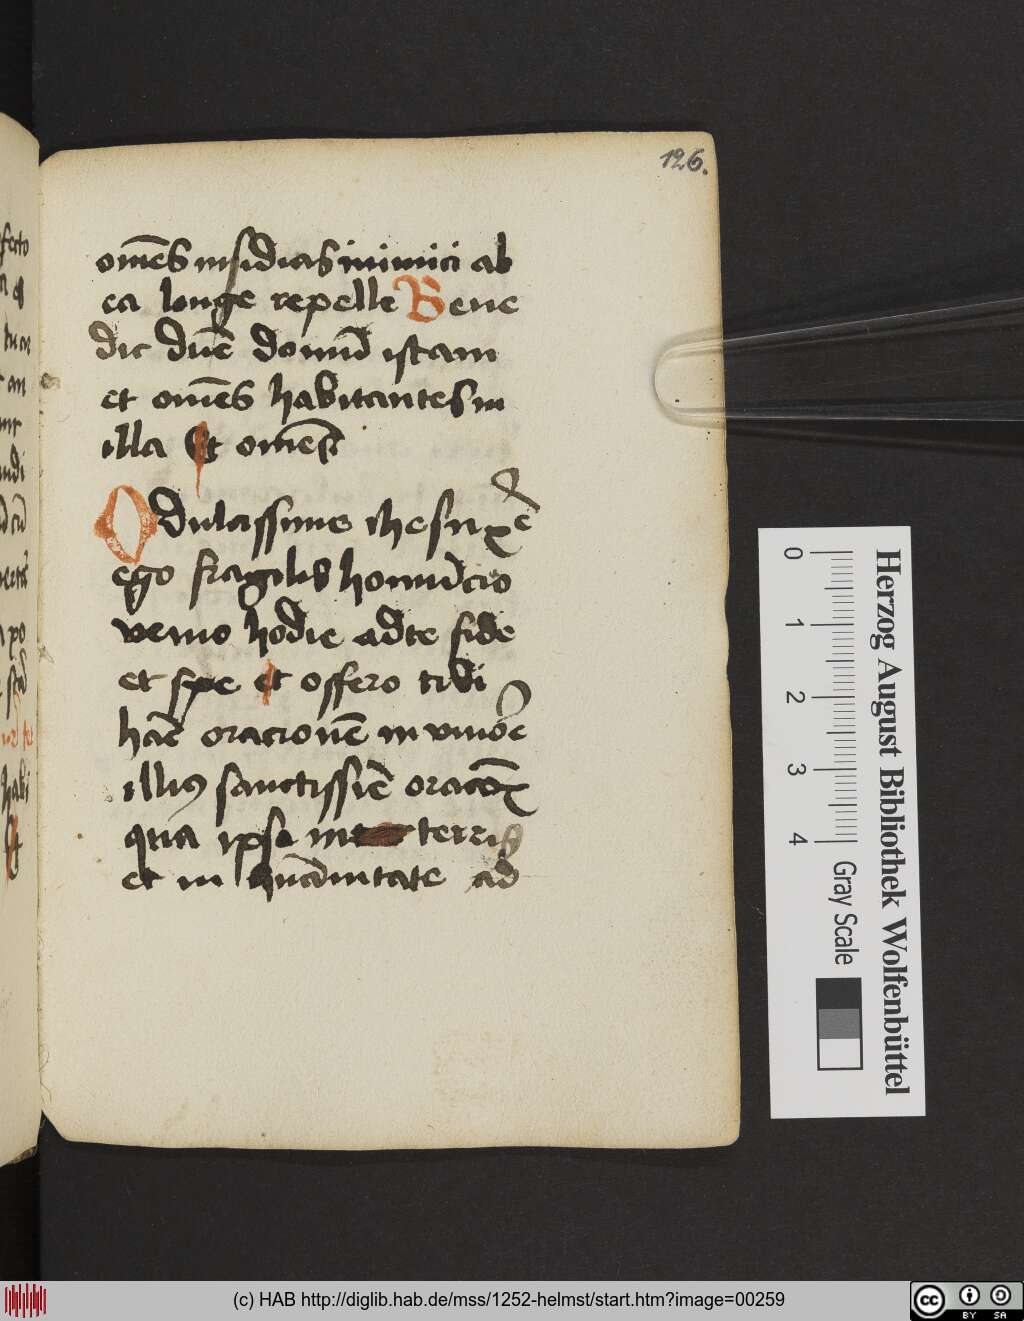 126.
om̄es insidias inimici ab
ea longe repelle Bene
dic dn̄e domū istam
et om̄es habitantes in
illa Et om̄es
O dulcissime ihesu xp̄e
ego fragilis homūcio
venio hodie ad te fide
et spe et offero tibi
hāc oracionē in vnioē
illius sanctissīe oracōis
qua ipse in terris
et in hūanitate ad
Herzog August Bibliothek Wolfenbüttel
0 1 2 3 4
Gray Scale
(c) HAB http://diglib.hab.de/mss/1252-helmst/start.htm?image=00259
cc BY SA